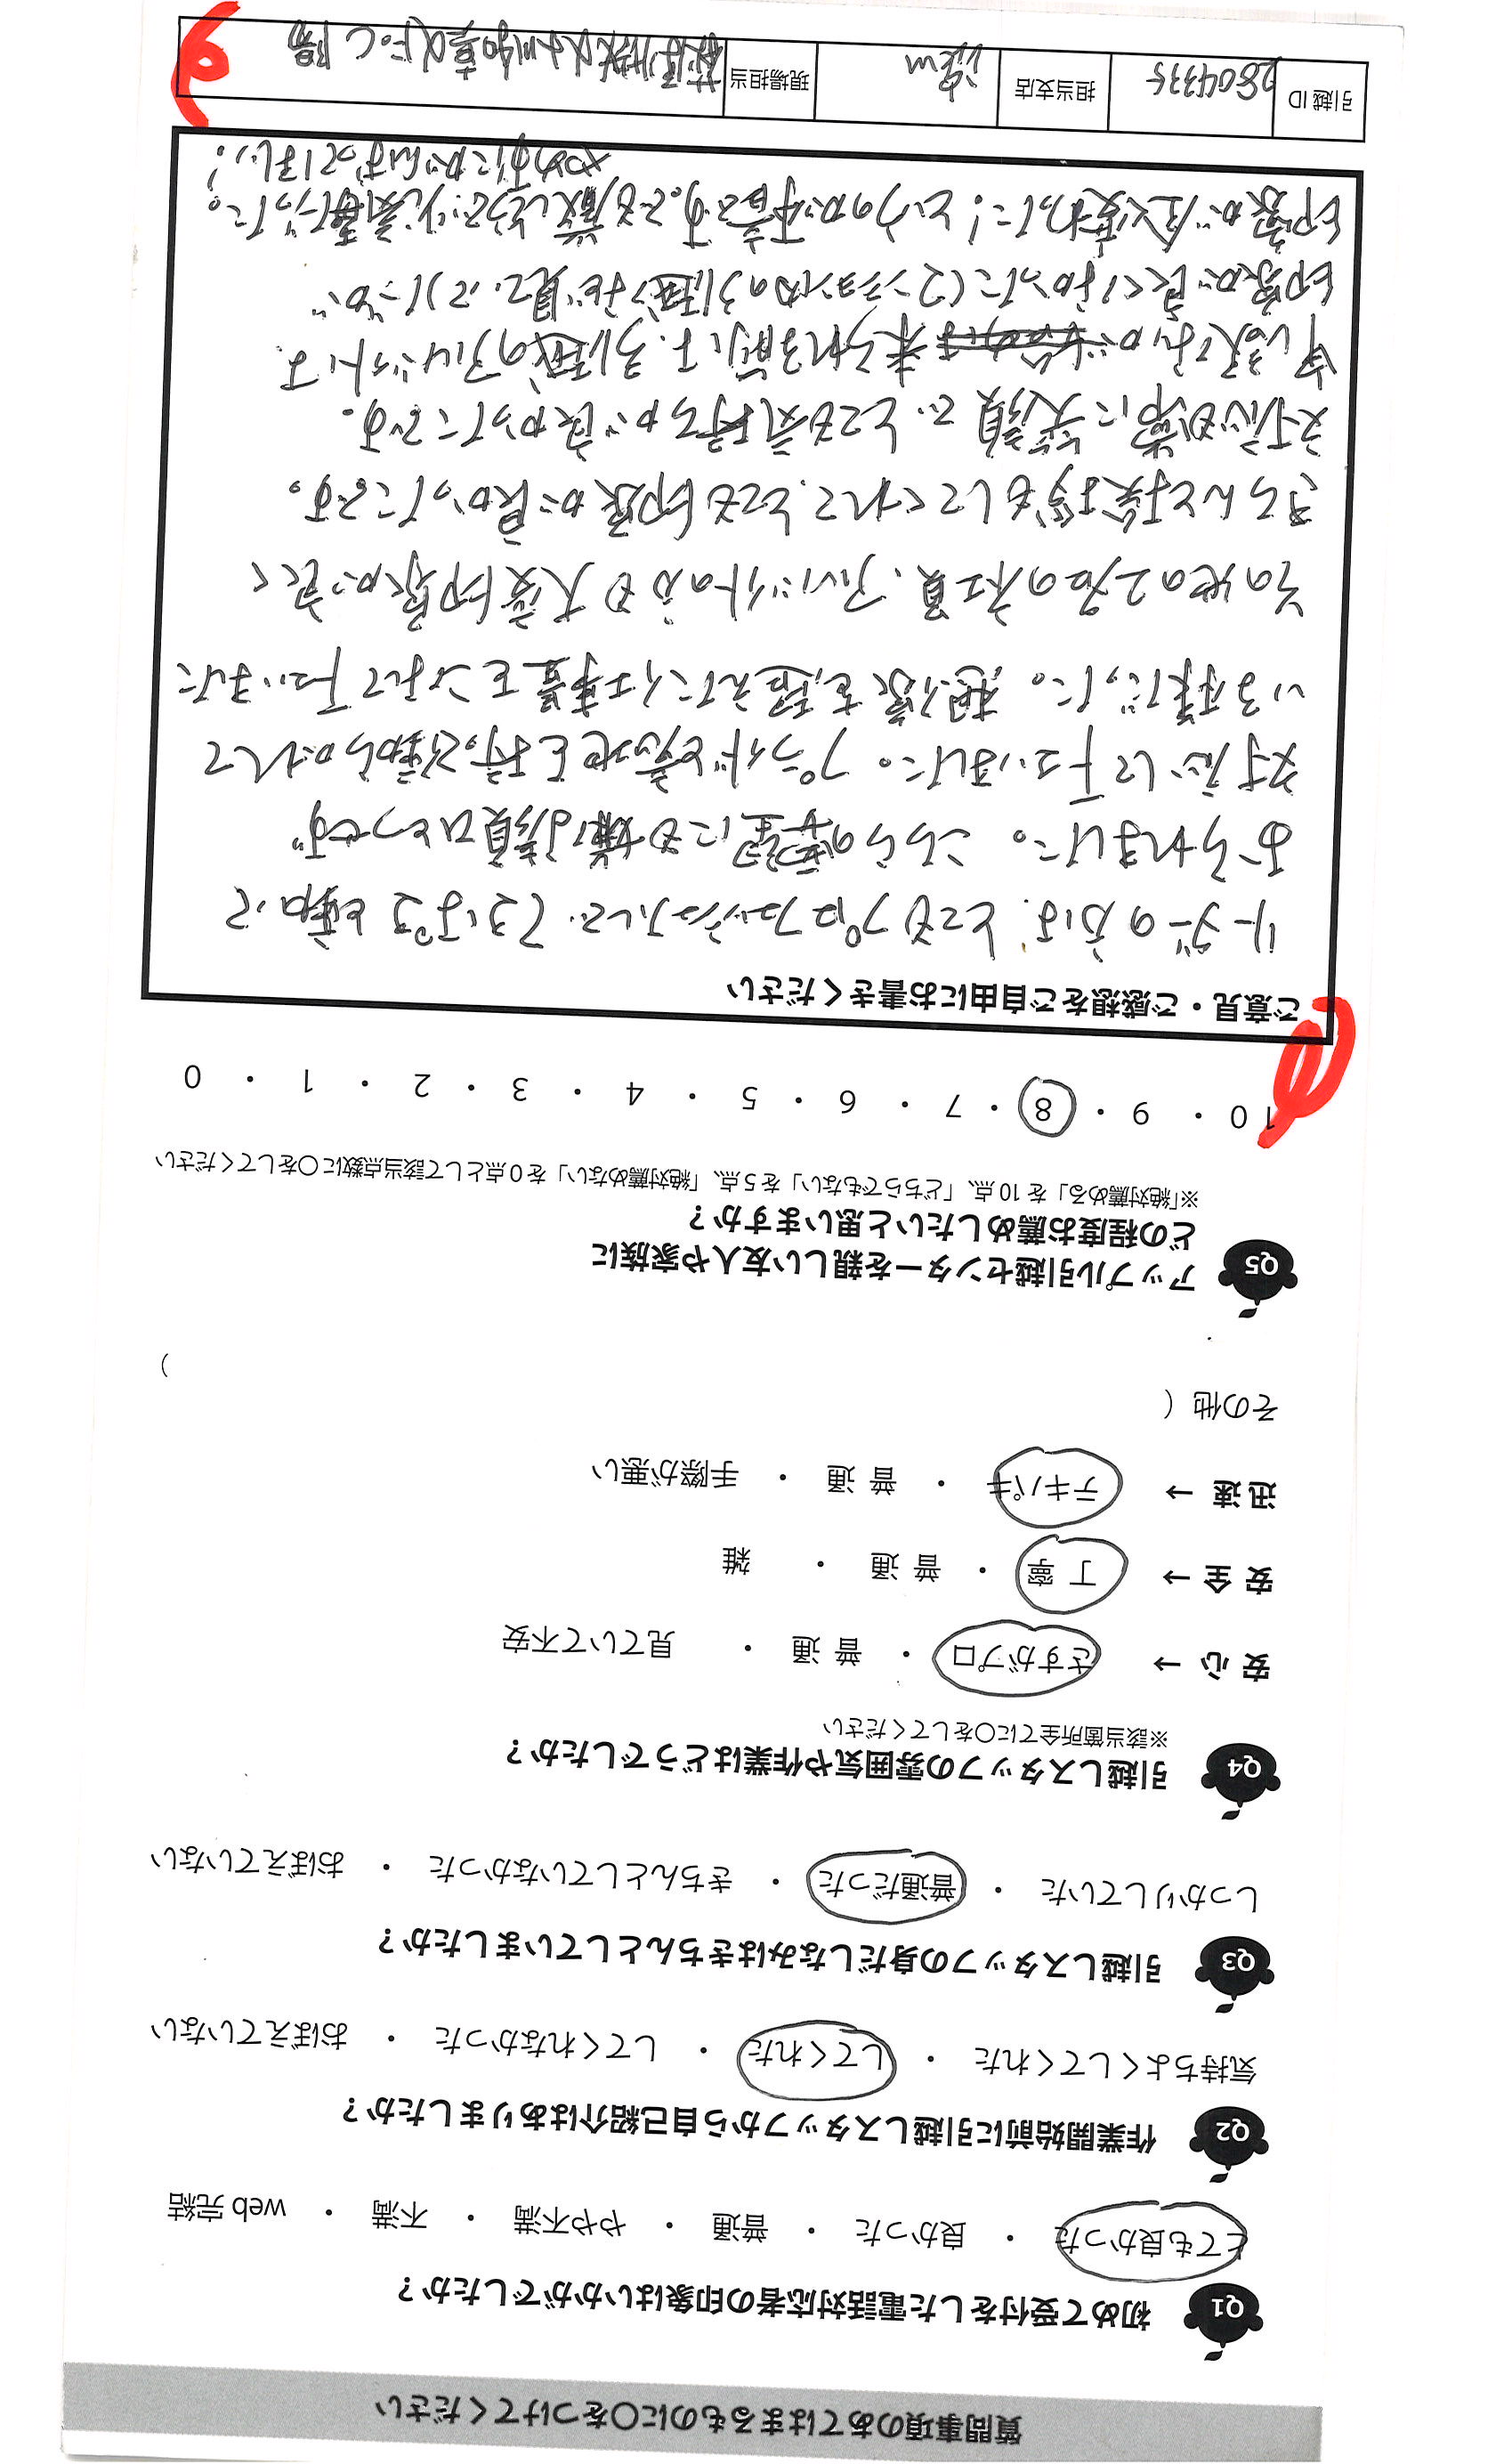 質問事項のあてはまるものに〇をつけてください
Q1 初めて受付をした電話対応者の印象はいかがでしたか？
とても良かった ・ 良かった ・ 普通 ・ やや不満 ・ 不満 ・ web 完結
Q2 作業開始前に引越しスタッフから自己紹介はありましたか？
気持ちよくしてくれた ・ してくれた ・ してくれなかった ・ おぼえていない
Q3 引越しスタッフの身だしなみはきちんとしていましたか？
しっかりしていた ・ 普通だった ・ きちんとしていなかった ・ おぼえていない
Q4 引越しスタッフの雰囲気や作業はどうでしたか？
※該当箇所全てに〇をしてください
安 心 → さすがプロ ・ 普 通 ・ 見ていて不安
安 全 → 丁 寧 ・ 普 通 ・ 雑
迅 速 → テキパキ ・ 普 通 ・ 手際が悪い
その他（ ）
Q5 アップル引越センターを親しい友人や家族に
どの程度お薦めしたいと思いますか？
※「絶対薦める」を 10 点、「どちらでもない」を 5 点、「絶対薦めない」を 0 点として該当点数に〇をしてください
10 ・ 9 ・ 8 ・ 7 ・ 6 ・ 5 ・ 4 ・ 3 ・ 2 ・ 1 ・ 0
ご意見・ご感想をご自由にお書きください
リーダーの方は、とてもプロフェッショナルで、てきぱきと動いて
おられました。こちらの要望にも嫌な顔ひとつせず
対応して下さいました。プライドと意地を持って動かれて
いる様だった。想像を超えた仕事量をこなして下さいました
その他の2名の社員、アルバイトの方も大変印象が良く
きちんと挨拶もしてくれて、とても印象が良かったです。
対応も常に笑顔で とても気持ちが良かったです。
申し訳ないが 来られる前は、引越のアルバイトは
印象が良くなかった（マンション内の引越など見ていて）が
印象が全く変わった！というのが本音です。
がんばってほしい！
引越 ID 2804335 担当支店 現場担当